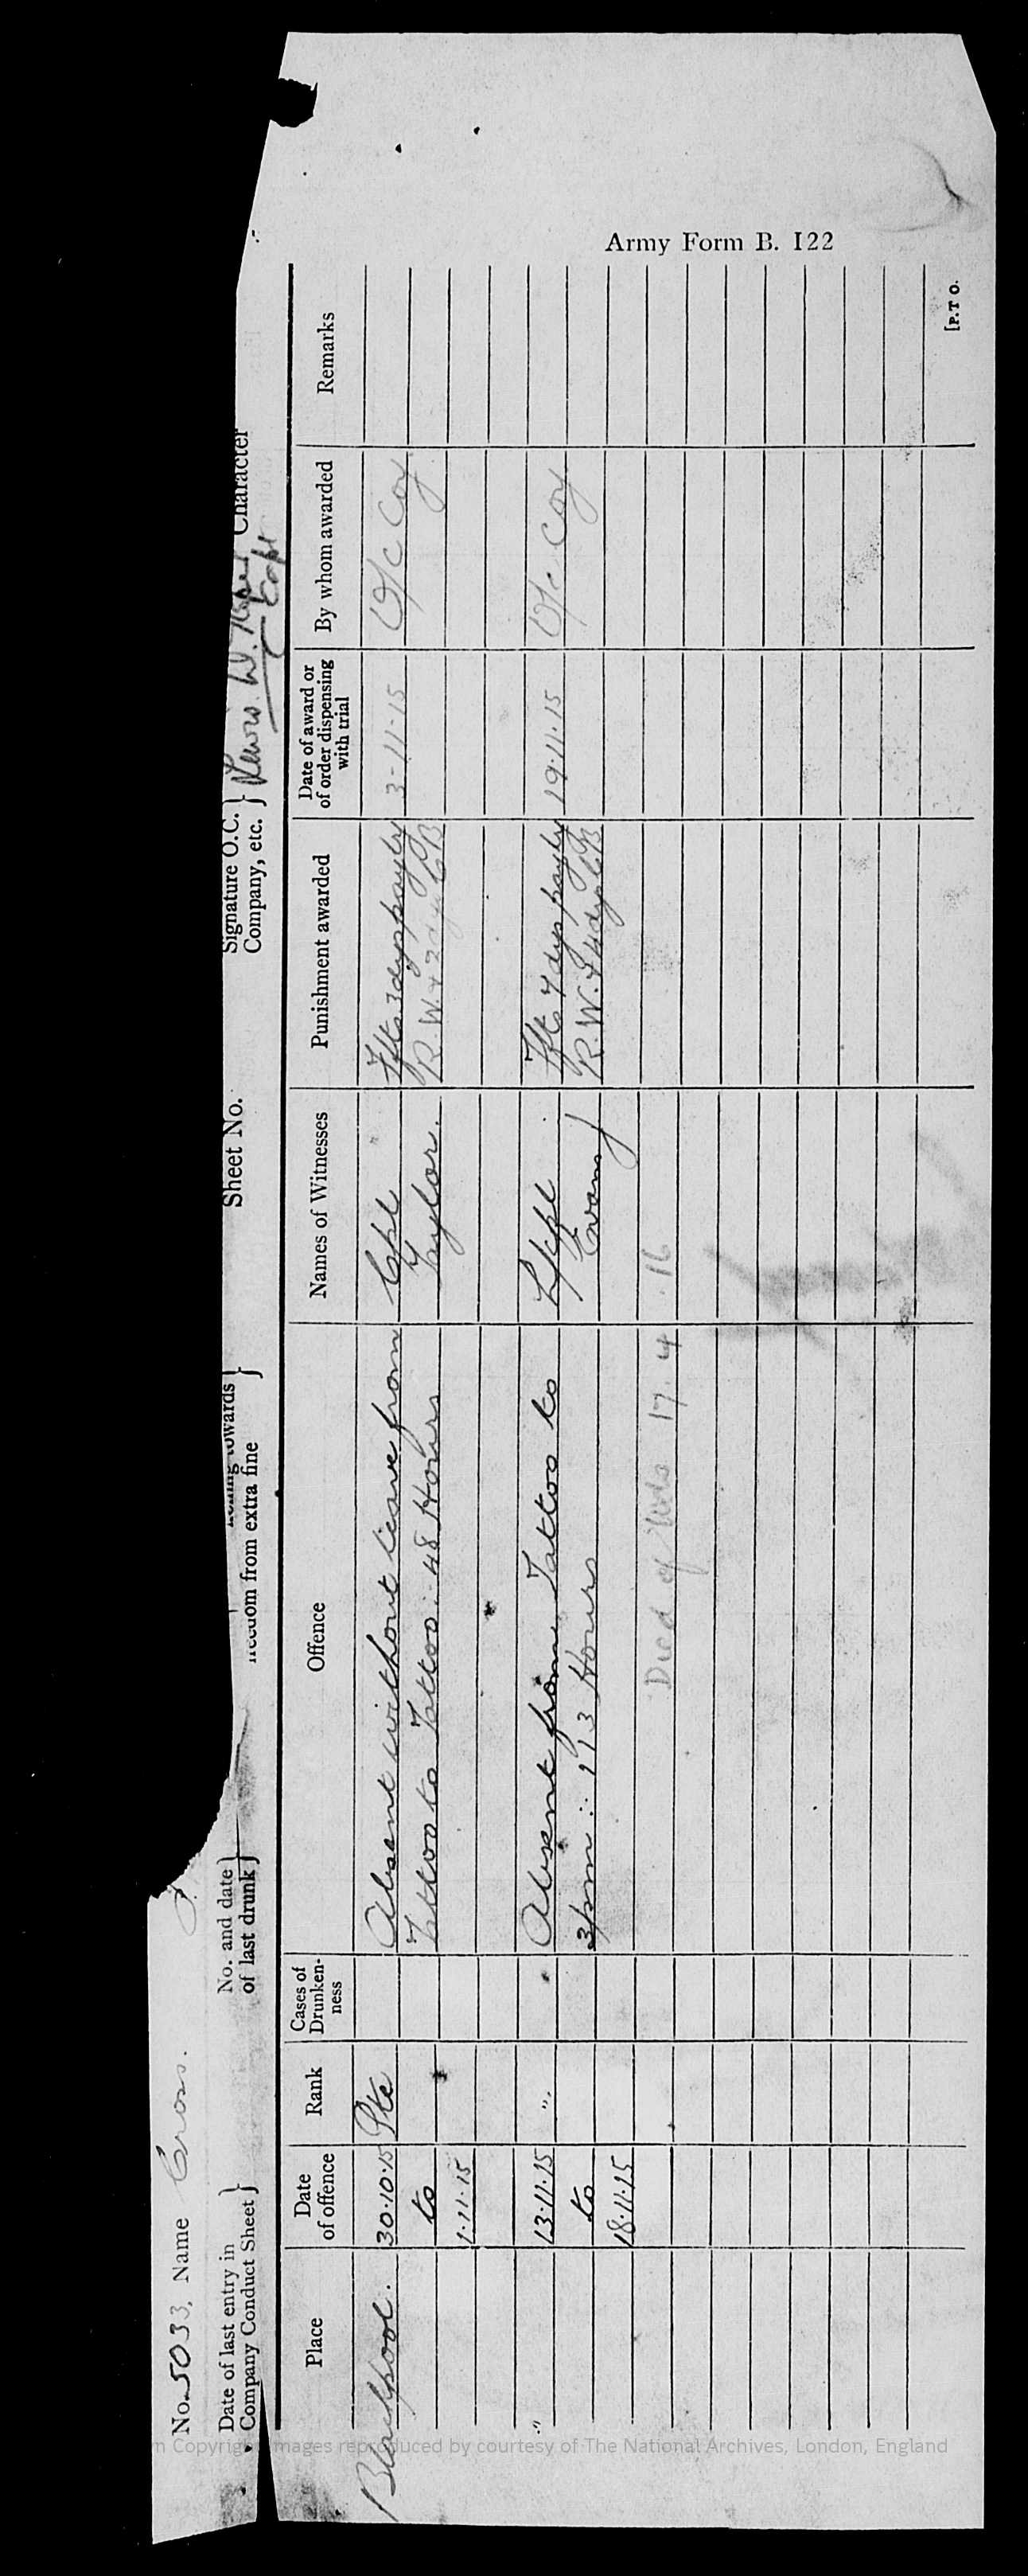 Army Form B. 122
No. 5033. Name Cross.
Date of last entry in
Company Conduct Sheet }
No. and date
of last drunk }
towards
freedom from extra fine }
Sheet No.
Signature O.C.
Company, etc. } Lewis W. Capt
Character
Place
Date
of offence
Rank
Cases of
Drunken-
ness
Offence
Names of Witnesses
Punishment awarded
Date of award or
of order dispensing
with trial
By whom awarded
Remarks
Blackpool. 30.10.15 Pte Absent without leave from Cpl Ffts 3 dys pay by 3-11-15 O/c Coy
to Tattoo to Tattoo :- 48 Hours Taylor. R.W. & 3 dys CB
1.11.15
" 13.11.15 " Absent from Tattoo to L/Cpl Ffts 7 dys pay by 19.11.15 O/c Coy
to 3pm :- 113 Hours Evans R.W. & 4 dys CB
18.11.15
Died of Wds 17.4.16
[P.T.O.
Copyright images reproduced by courtesy of The National Archives, London, England